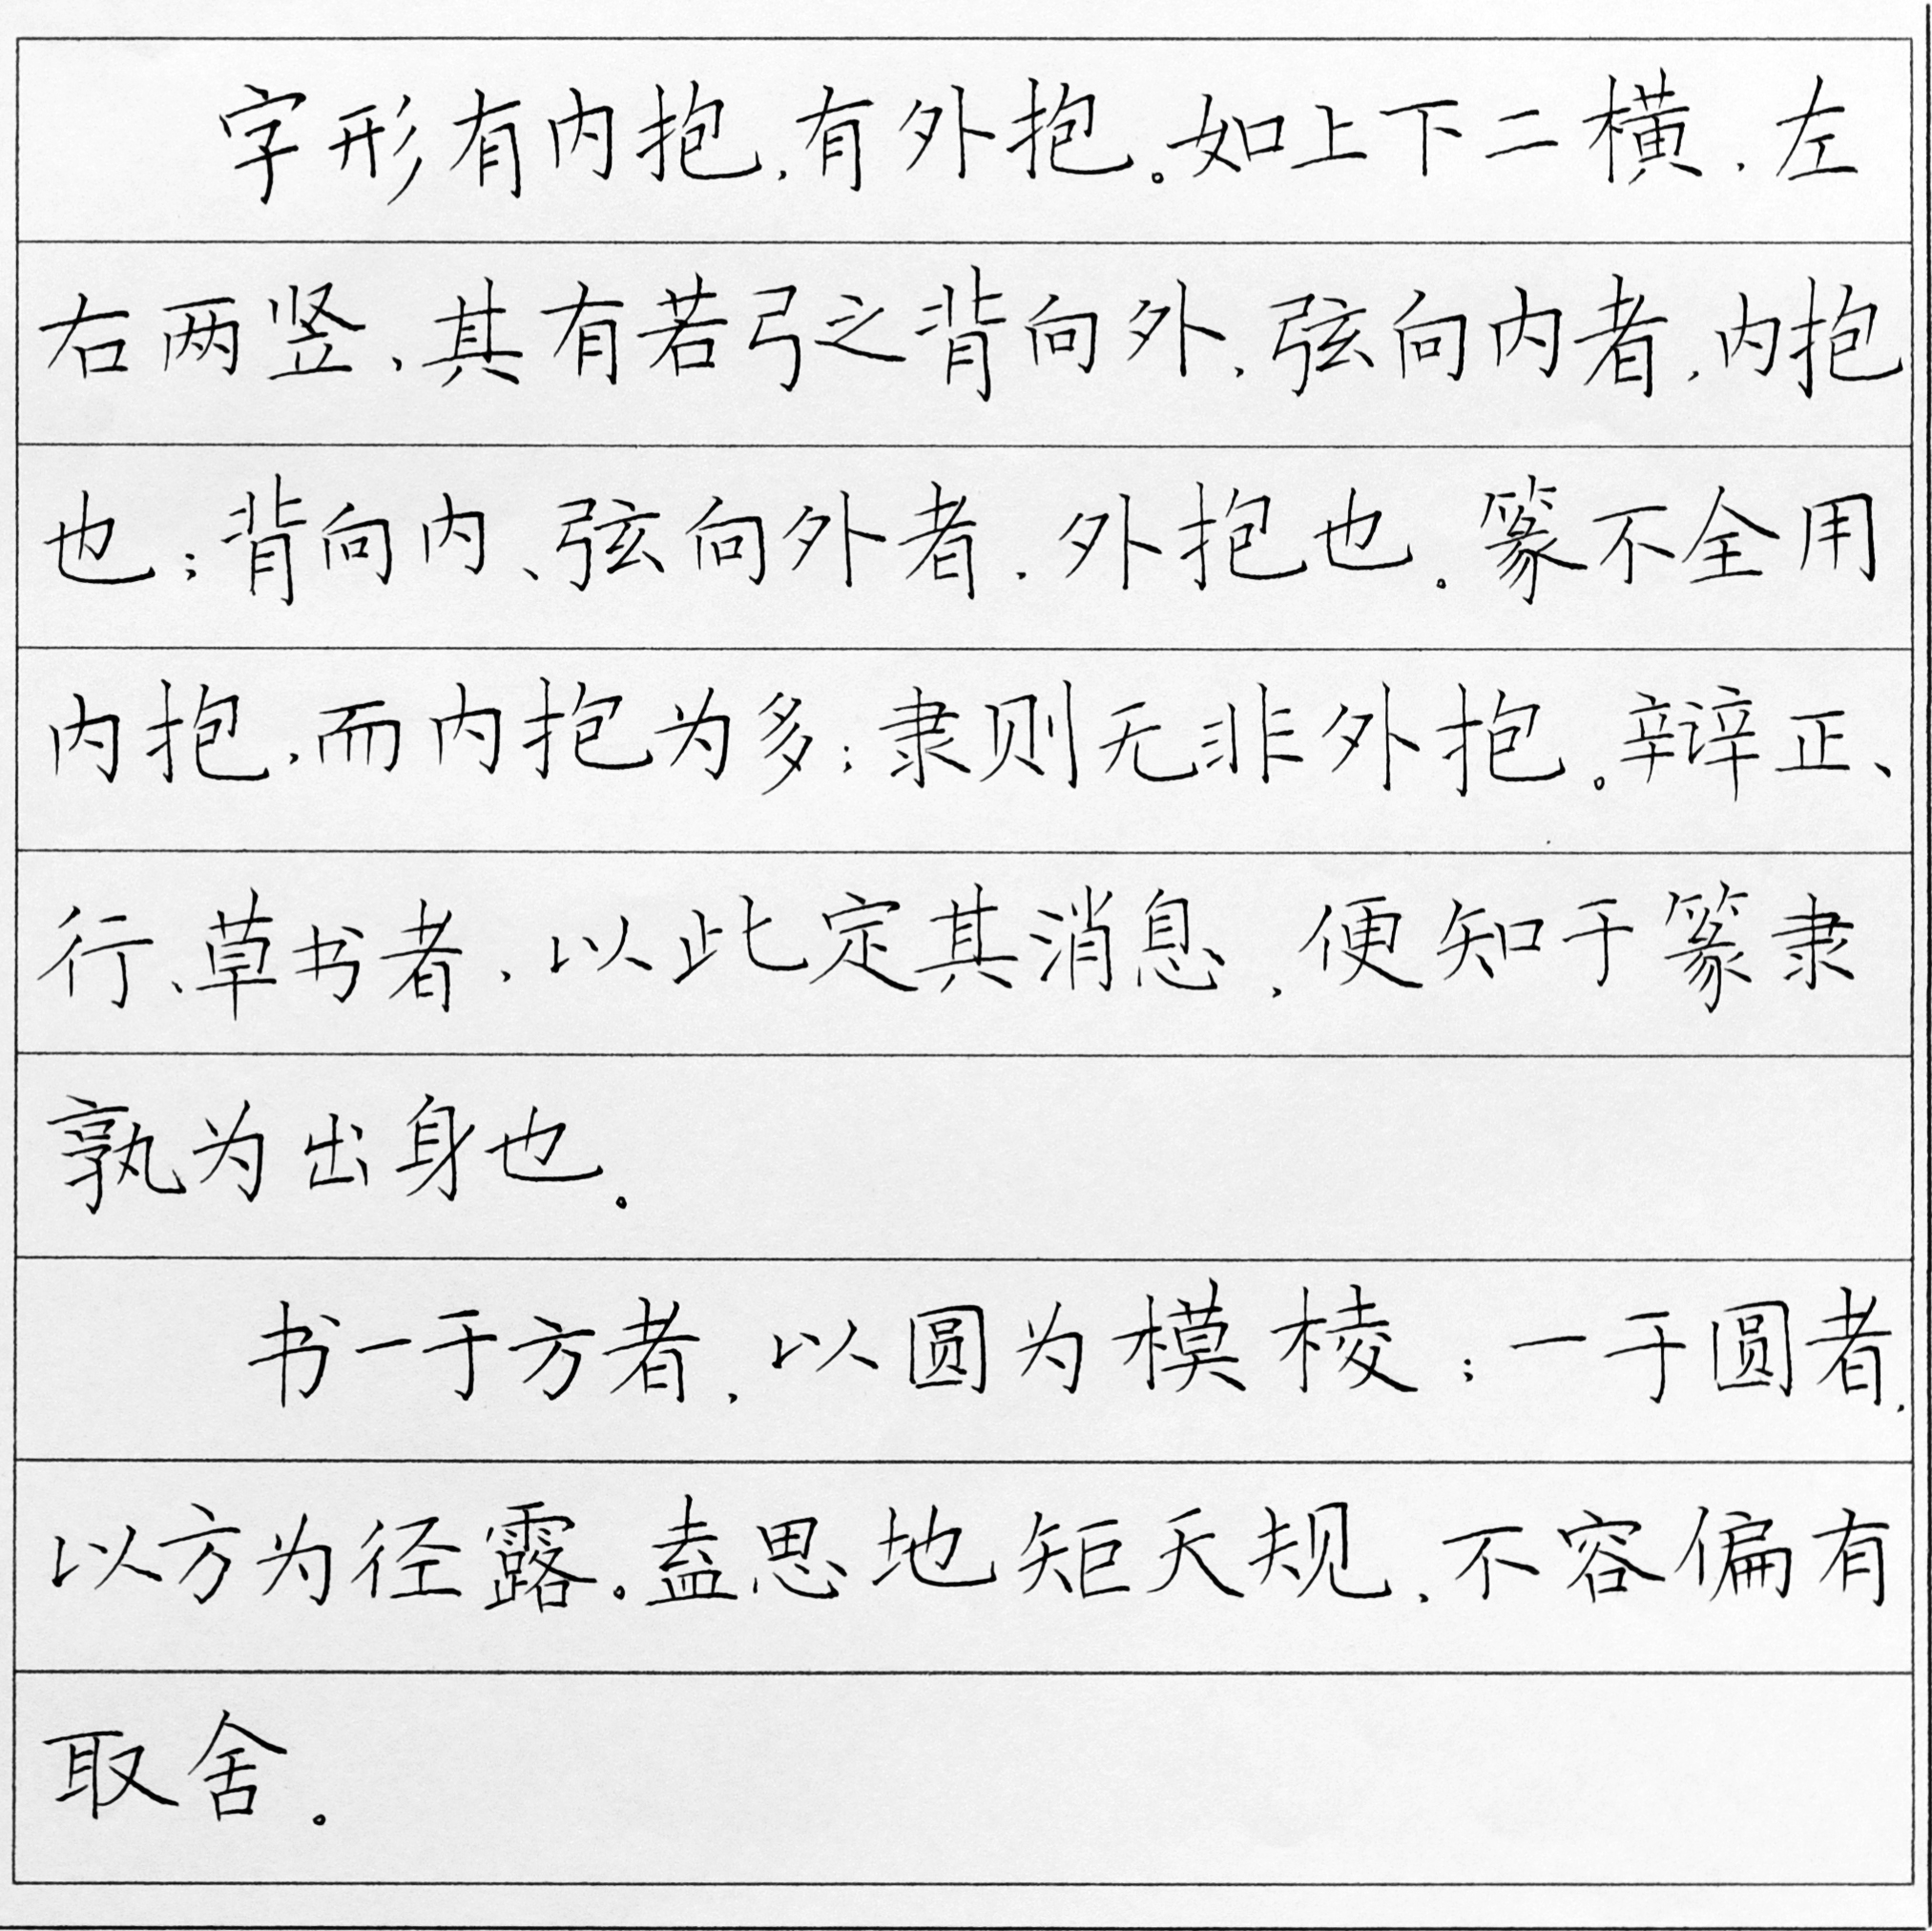 字形有内抱,有外抱。如上下二横,左
右两竖,其有若弓之背向外,弦向内者,内抱
也;背向内、弦向外者,外抱也。篆不全用
内抱,而内抱为多;隶则无非外抱。辩正、
行、草书者,以此定其消息,便知于篆隶
孰为出身也。
书一于方者,以圆为模棱;一于圆者,
以方为径露。盍思地矩天规,不容偏有
取舍。